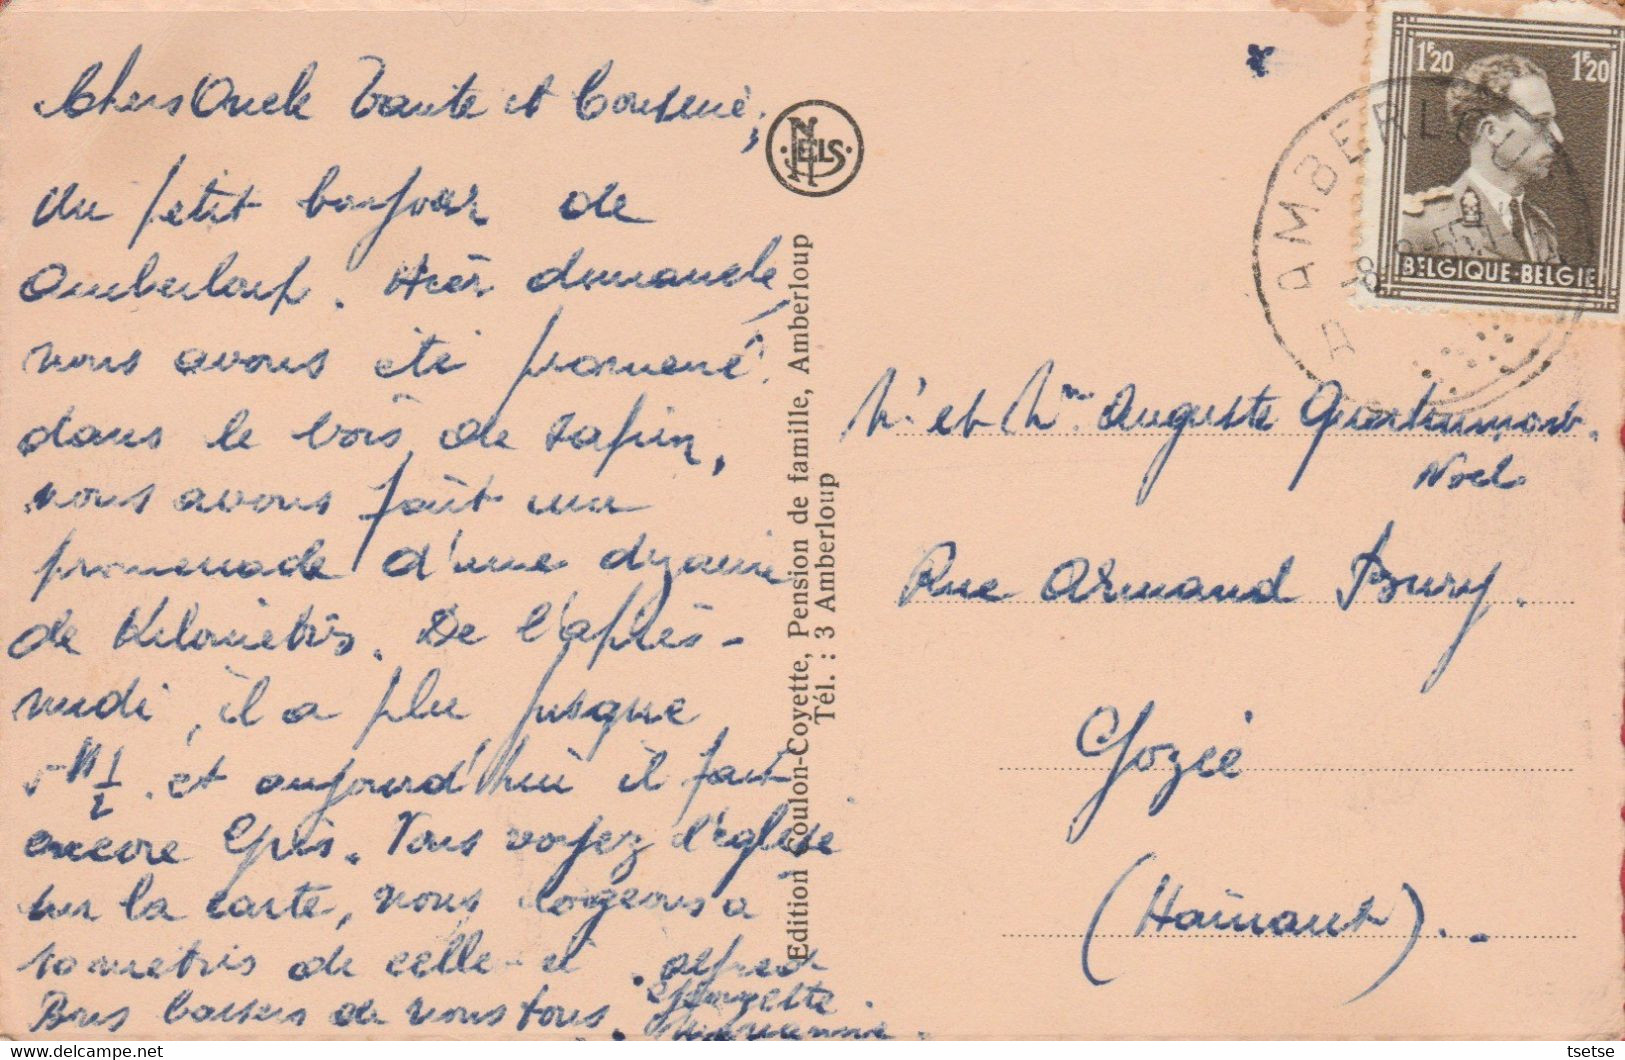 Chers Oncle Tante et Cousine,
un petit bonjour de
Amberloup. Hier dimanche
nous avons été promené
dans le bois de sapin,
nous avons fait une
promenade d'une dizaine
de Kilomètres. De l'après-
midi, il a plu jusque
5 H 1/2. et aujourd'hui il fait
encore gris. Vous voyez l'église
sur la carte, nous logeons à
10 mètres de celle-ci. Alfred
Georgette
Bons baisers de nous tous.
NELS
Edition Coulon-Coyette, Pension de famille, Amberloup
Tél. : 3 Amberloup
1F20 1F20
BELGIQUE-BELGIE
AMBERLOUP
A
Mr et Mme Auguste
Noël
Rue Armand Bury.
Gozée
(Hainaut).
tsetse